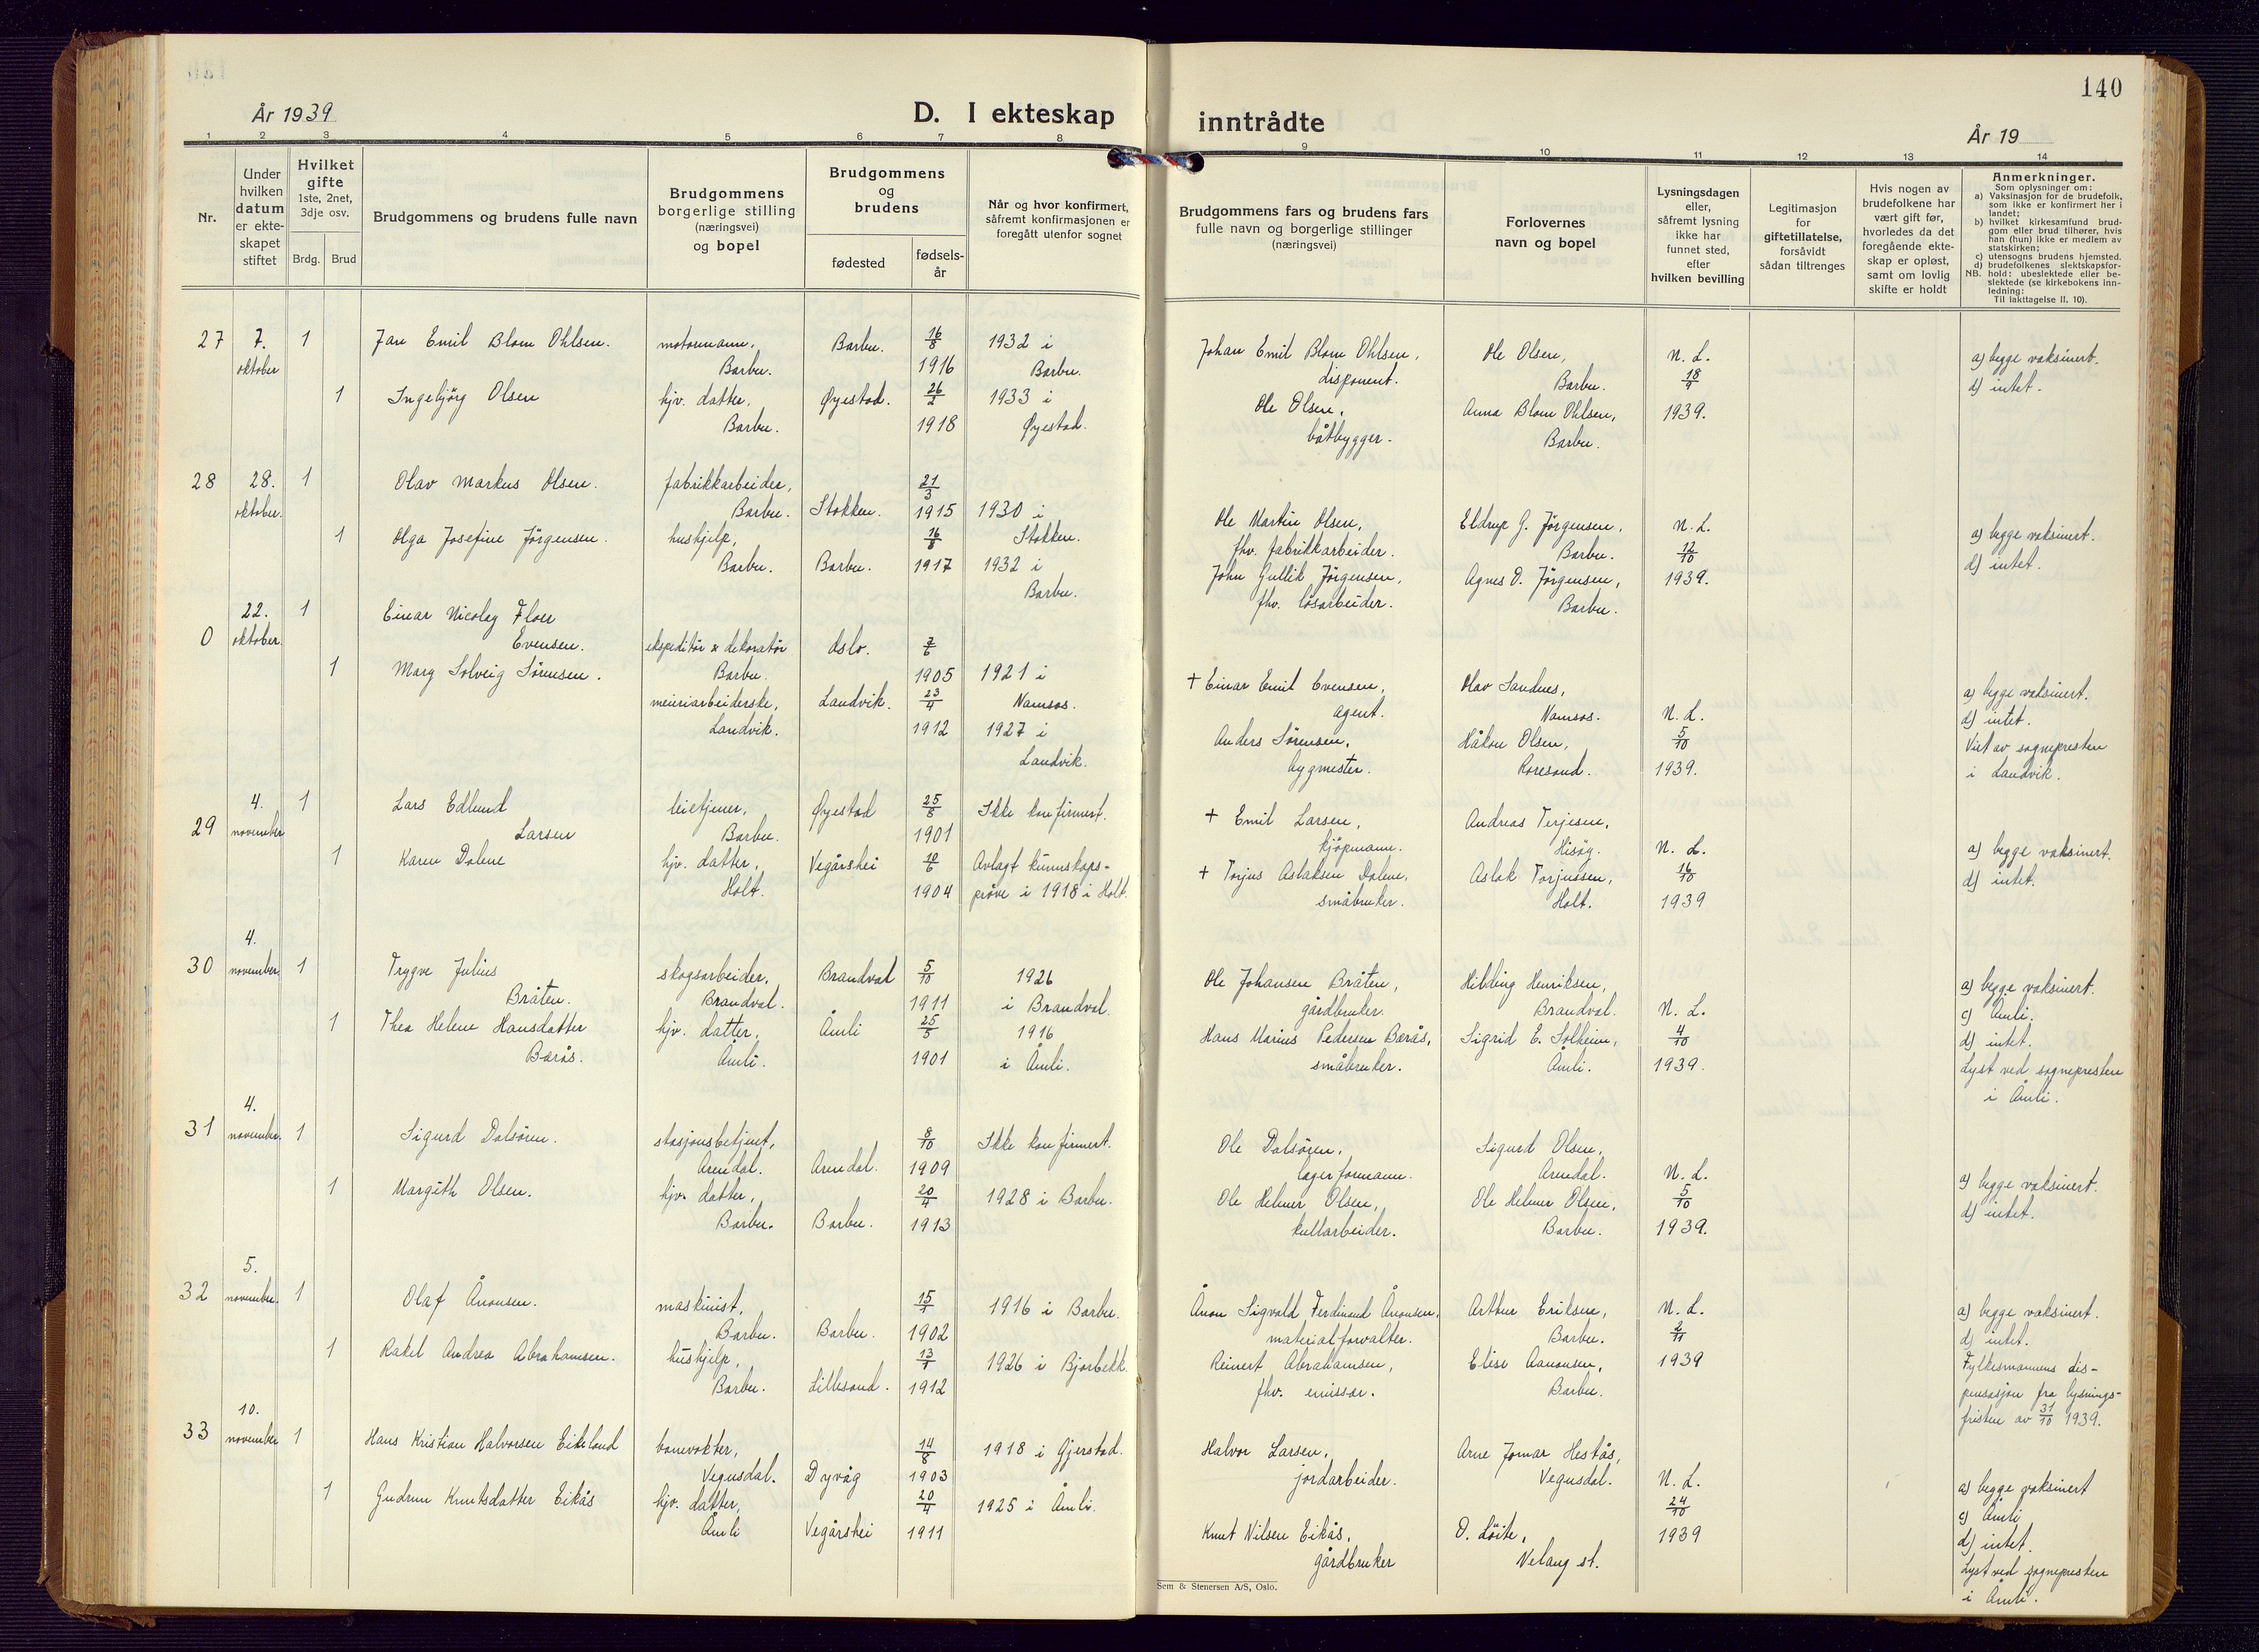 140
År 1939
D. I ekteskap inntrådte
År 19
1 2 3 4 5 6 7 8 9 10 11 12 13 14
Nr.
Under hvilken datum er ekte- skapet stiftet
Hvilket gifte 1ste, 2net, 3dje osv.
Brdg. Brud
Brudgommens og brudens fulle navn
Brudgommens borgerlige stilling (næringsvei) og bopel
Brudgommens og brudens
fødested
fødsels- år
Når og hvor konfirmert, såfremt konfirmasjonen er foregått utenfor sognet
Brudgommens fars og brudens fars fulle navn og borgerlige stillinger (næringsvei)
Forlovernes navn og bopel
Lysningsdagen eller, såfremt lysning ikke har funnet sted, efter hvilken bevilling
Legitimasjon for giftetillatelse, forsåvidt sådan tiltrenges
Hvis nogen av brudefolkene har vært gift før, hvorledes da det foregående ekte- skap er opløst, samt om lovlig skifte er holdt
Anmerkninger.
Som oplysninger om:
a) Vaksinasjon for de brudefolk, som ikke er konfirmert her i landet;
b) hvilket kirkesamfund brud- gom eller brud tilhører, hvis han (hun) ikke er medlem av statskirken;
c) utensogns brudens hjemsted.
d) brudefolkenes slektskapsfor- hold: ubeslektede eller be- slektede (se kirkebokens inn- ledning:
NB.
Til iakttagelse II. 10).
27 7. oktober 1 Jan Emil Blom Ohlsen. motormann, Barbu. Barbu. 16/8 1916 1932 i Barbu.
Johan Emil Blom Ohlsen, disponent. Ole Olsen, Barbu. N. L. 18/9 1939. a) begge vaksinert. d) intet.
1 Ingebjörg Olsen hjv. datter, Barbu. Øyestad. 26/2 1918 1933 i Øyestad.
Ole Olsen, båtbygger. Anna Blom Ohlsen, Barbu.
28 28. oktober. 1 Olav Markus Olsen. fabrikkarbeider, Barbu. Stokken. 21/3 1915 1930 i Stokken.
Ole Martin Olsen, fhv. fabrikkarbeider. Eldrup G. Jörgensen, Barbu. N. L. 12/10 1939. a) begge vaksinert. d) intet.
1 Olga Josefine Jörgensen. hushjelp, Barbu. Barbu. 16/8 1917 1932 i Barbu.
John Gullik Jörgensen, fhv. løsarbeider. Agnes D. Jörgensen, Barbu.
0 22. oktober. 1 Einar Nicolay Floer Evensen. ekspeditör & dekoratör Barbu. Oslo. 7/6 1905 1921 i Namsos.
+ Einar Emil Evensen, agent. Olav Sandnes, Namsos. N. L. 5/10 1939. a) begge vaksinert. d) intet. Viet av sognepresten i Landvik.
1 Mary Solveig Sörensen. meieriarbeiderske, Landvik. Landvik. 23/4 1912 1927 i Landvik.
Anders Sörensen, bygmester. Håkon Olsen, Roresand.
29 4. november 1 Lars Edlund Larsen leietjener, Barbu. Øyestad 25/8 1901 Ikke konfirmert.
+ Emil Larsen, kjöpmann. Andreas Terjesen, Hisöy. N. L. 16/10 1939 a) begge vaksinert. d) intet.
1 Karen Dalene hjv. datter, Holt. Vegårshei 10/6 1904 Avlagt kunnskaps- pröve i 1918 i Holt.
+ Torjus Aslaksen Dalene, småbruker. Aslak Torjussen, Holt.
30 4. november 1 Trygve Julius Bråten. skogsarbeider, Brandval. Brandval 5/10 1911 1926 i Brandval.
Ole Johansen Bråten, gårdbruker. Hilding Henriksen, Brandval. N. L. 4/10 1939. a) begge vaksinert. c) Åmli. d) intet. Lyst ved sognepresten i Åmli.
1 Thea Helene Hansdatter Barås. hjv. datter, Åmli. Åmli 25/5 1901 1916 i Åmli.
Hans Marius Pedersen Barås, småbruker. Sigrid E. Solheim, Åmli.
31 4. november. 1 Sigurd Dalsören. stasjonsbetjent, Arendal. Arendal. 8/10 1909 Ikke konfirmert.
Ole Dalsören, lagerformann. Sigurd Olsen, Arendal. N. L. 5/10 1939. a) begge vaksinert. d) intet.
1 Margith Olsen. hjv. datter, Barbu. Barbu. 20/4 1913 1928 i Barbu.
Ole Helmer Olsen, kullarbeider. Ole Helmer Olsen, Barbu.
32 5. november. 1 Olaf Ånonsen. maskinist, Barbu. Barbu. 15/1 1902 1916 i Barbu.
Ånon Sigvald Ferdinand Ånonsen, materialforvalter. Arthur Eriksen, Barbu. N. L. 2/11 1939 a) begge vaksinert. d) intet. Fylkesmannens dis- pensasjon fra lysnings- fristen av 31/10 1939.
1 Rakel Andrea Abrahamsen. hushjelp, Barbu. Lillesand. 13/1 1912 1926 i Bjorbekk.
Reinert Abrahamsen, fhv. emissær. Elise Aanonsen, Barbu.
33 10. november 1 Hans Kristian Halvorsen Eikeland banevokter, Vegusdal. Dyvåg 14/8 1903 1918 i Gjerstad.
Halvor Larsen, jordarbeider. Arne Jomar Hestås, Vegusdal. N. L. 24/10 1939 a) begge vaksinert c) Åmli d) intet. Lyst ved sognepresten i Åmli.
1 Gudrun Knutsdatter Eikås hjv. datter, Åmli Vegårshei 20/4 1911 1925 i Åmli.
Knut Nilsen Eikås, gårdbruker O. Löite, Nelaug st.
Sem & Stenersen A/S, Oslo.